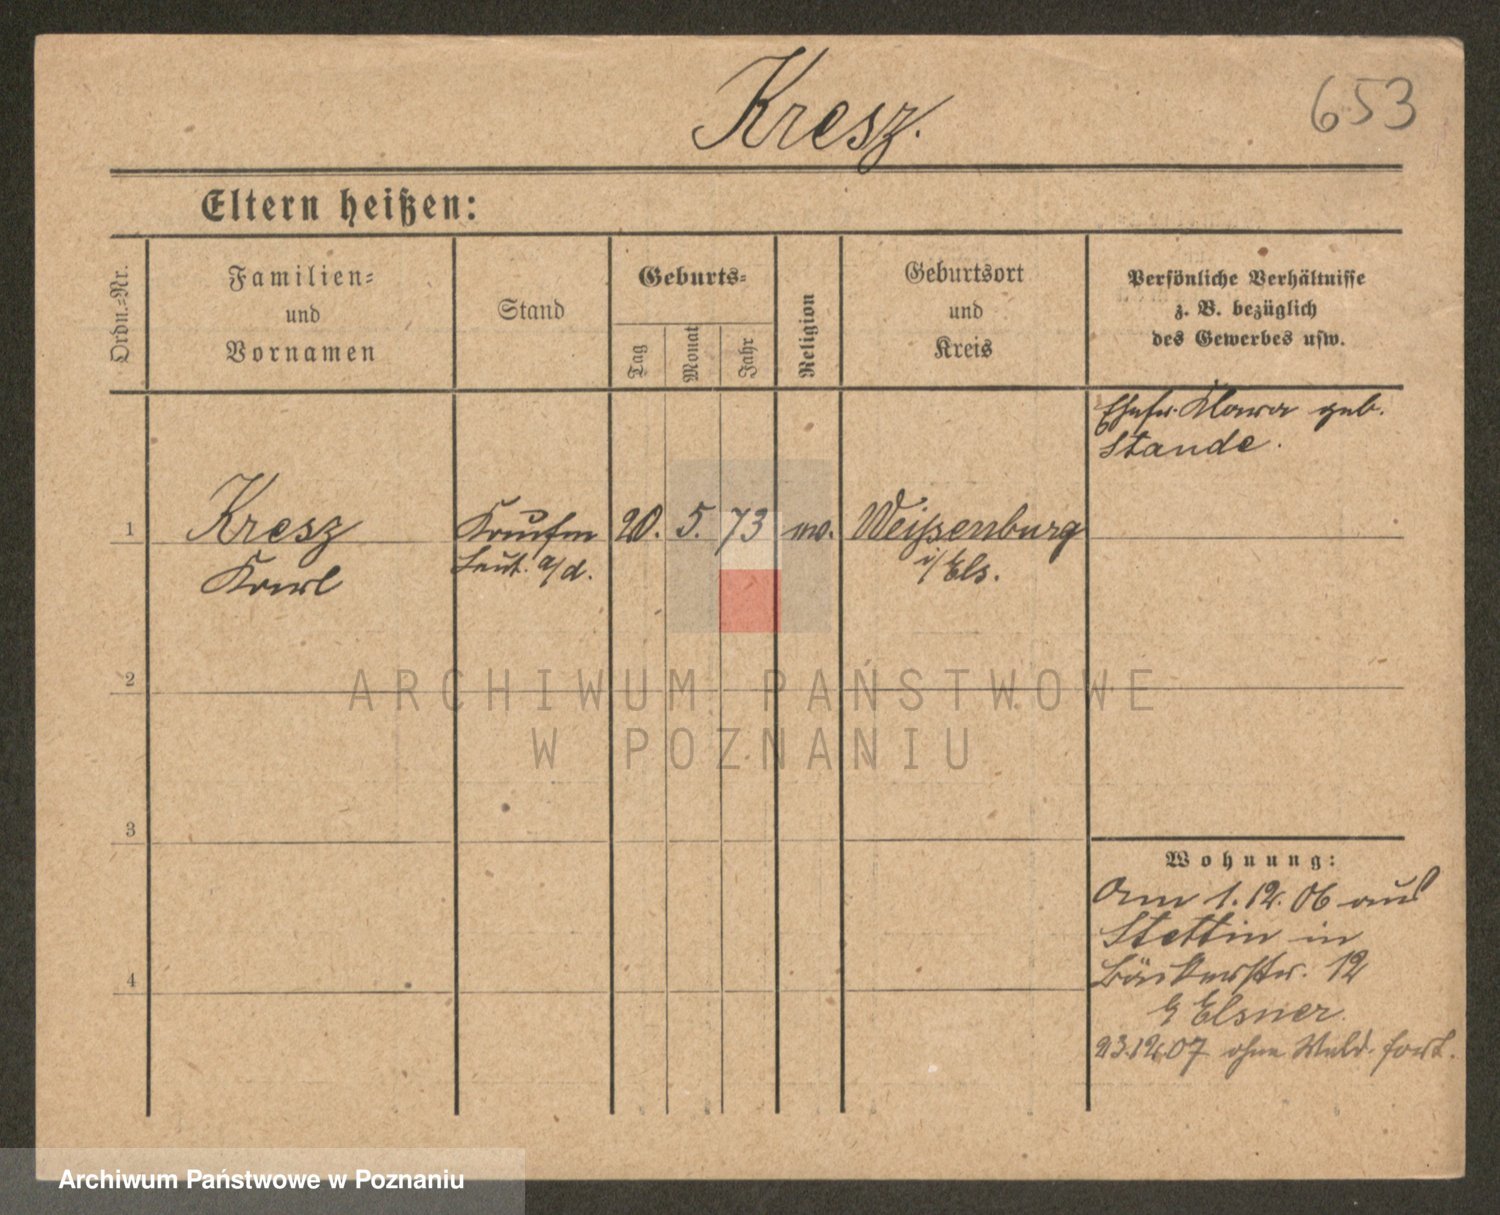 Kresz.
653
Eltern heißen:
Ordn.-Nr.
Familien-
und
Vornamen
Stand
Geburts-
Tag
Monat
Jahr
Religion
Geburtsort
und
Kreis
Persönliche Verhältnisse
z. B. bezüglich
des Gewerbes usw.
Ehefr. Klara geb.
Stande.
1
Kresz
Karl
Kaufm
Leut. a/d.
20.
5.
73
ev.
Weißenburg
i/Els.
2
3
4
Wohnung:
Am 1.12.06 aus
Stettin in
Bäckerstr. 12
Elsner.
23.12.07 ohne Meld. fort.
ARCHIWUM PAŃSTWOWE
W POZNANIU
Archiwum Państwowe w Poznaniu